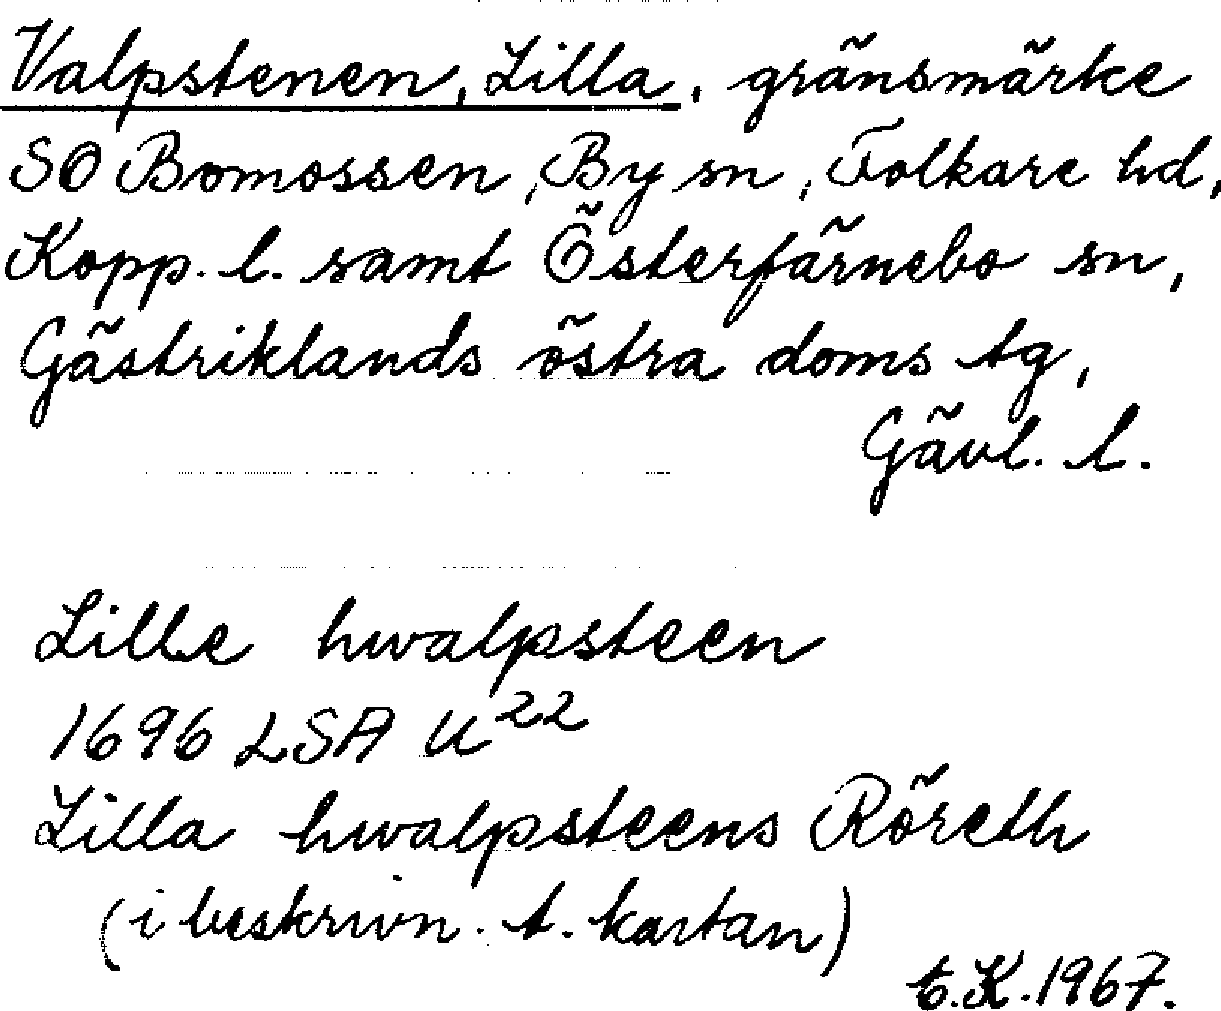 Valpstenen, Lilla, gränsmärke
SO Bomossen, By sn, Folkare hd,
Kopp. l. samt Österfärnebo sn,
Gästriklands östra doms tg,
Gävl. l.
Lille hwalpsteen
1696 LSA U²²
Lilla hwalpsteens Röreth
(i beskrivn. t. kartan)
E.K. 1967.